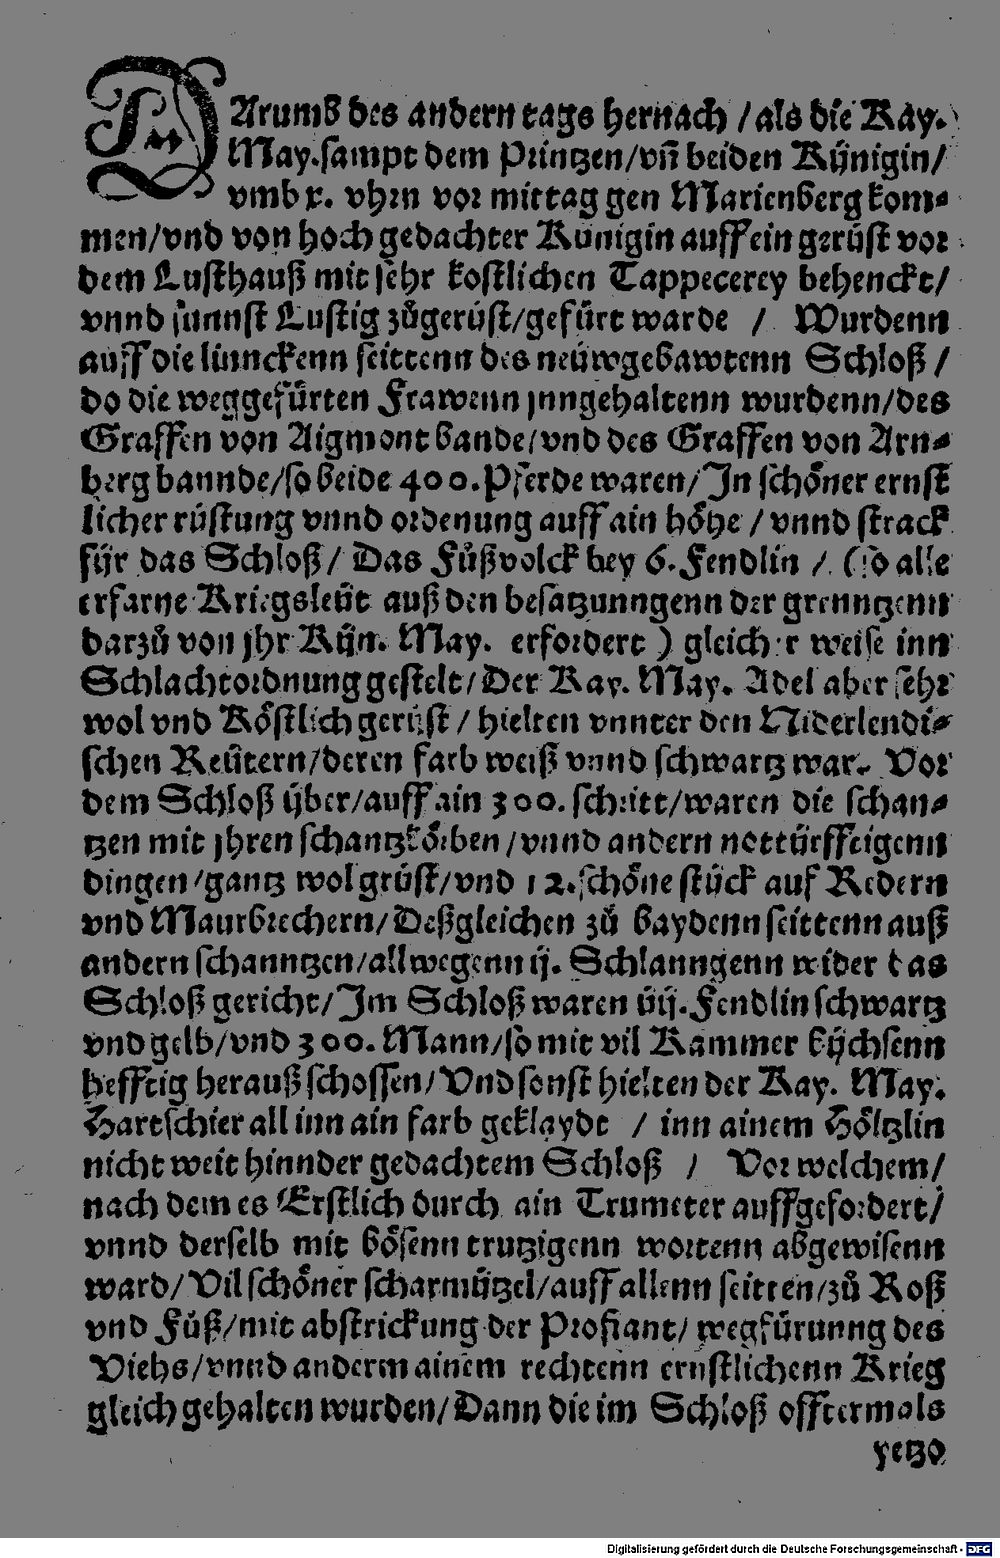 DArumb des andern tags hernach / als die Kay.
May. sampt dem Printzen / vn̄ beiden Kÿnigin /
vmb x. vhrn vor mittag gen Marienberg kom⸗
men / vnd von hoch gedachter Künigin auff ein gerüst vor
dem Lusthauß mit sehr kostlichen Tappecerey behenckt /
vnnd sunnst Lustig zůgerüst / gefürt warde / Wurdenn
auff die linnckenn seittenn des neüwgebawtenn Schloß /
do die weggefürten Frawenn jnngehaltenn wurdenn / des
Graffen von Aigmont bande / vnd des Graffen von Arn⸗
berg bannde / so beide 400. Pferde waren / In schöner ernst
licher rüstung vnnd ordenung auff ain höhe / vnnd strack
für das Schloß / Das Fůßvolck bey 6. Fendlin / (so alle
erfarne Kriegsleüt auß den besatzunngenn der grenntzenn
darzů von jhr Kün. May. erfordert ) gleicher weise inn
Schlachtordnung gestelt / Der Kay. May. Adel aber sehr
wol vnd Köstlich gerüst / hielten vnnter den Niderlendi⸗
schen Reütern / deren farb weiß vnnd schwartz war. Vor
dem Schloß über / auff ain 300. schritt / waren die schan⸗
tzen mit jhren schantzkörben / vnnd andern nottürfftigenn
dingen / gantz wol grüst / vnd 12. schöne stück auf Redern
vnd Maurbrechern / Deßgleichen zů baydenn seittenn auß
andern schanntzen / allwegenn ij. Schlanngenn wider das
Schloß gericht / Im Schloß waren iiij. Fendlin schwartz
vnd gelb / vnd 300. Mann / so mit vil Kammer büchsenn
hefftig herauß schossen / Vnd sonst hielten der Kay. May.
Hartschier all inn ain farb geklaydt / inn ainem Höltzlin
nicht weit hinnder gedachtem Schloß / Vor welchem /
nach dem es Erstlich durch ain Trumeter auffgefordert /
vnnd derselb mit bösenn trutzigenn wortenn abgewisenn
ward / Vil schöner scharmützel / auff allenn seitten / zů Roß
vnd Fůß / mit abstrickung der Profiant / wegfürunng des
Viehs / vnnd anderm ainem rechtenn ernstlichenn Krieg
gleich gehalten wurden / Dann die im Schloß offtermals
yetzo
Digitalisierung gefördert durch die Deutsche Forschungsgemeinschaft - DFG